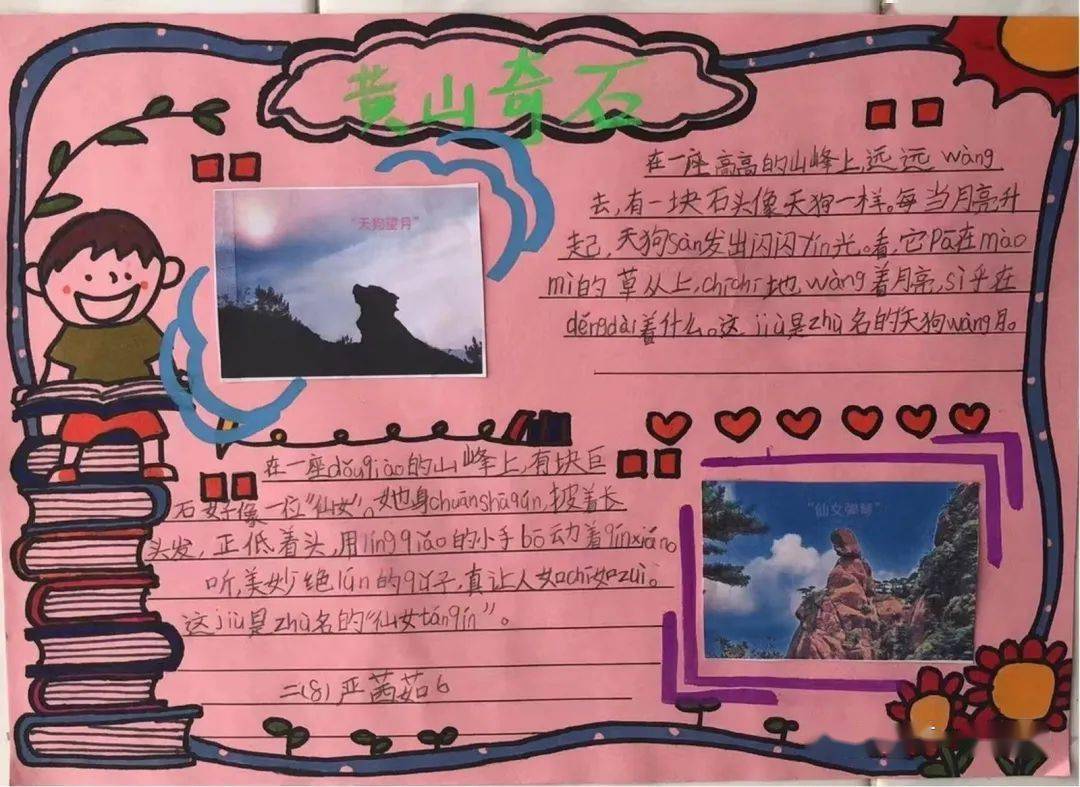 黄山奇石
"天狗望月"
在一座高高的山峰上,远远wàng
去,有一块石头像天狗一样。每当月亮升
起,天狗sàn发出闪闪Yín光。看,它Pā在mào
mì的草从上,chīchī地wàng着月亮,sì乎在
děngdài着什么。这jiù是zhù名的天狗wàng月。
在一座dǒuqiào的山峰上,有块巨
石好像一位"仙女"。她身chuānshāqún,披着长
头发,正低着头,用líng qiǎo的小手bō动着qínxián。
听,美妙绝lún的qǔ子,真让人如chī如zuì。
这jiù是zhù名的"仙女tánqín"。
二(8)严茜茹6
"仙女弹琴"